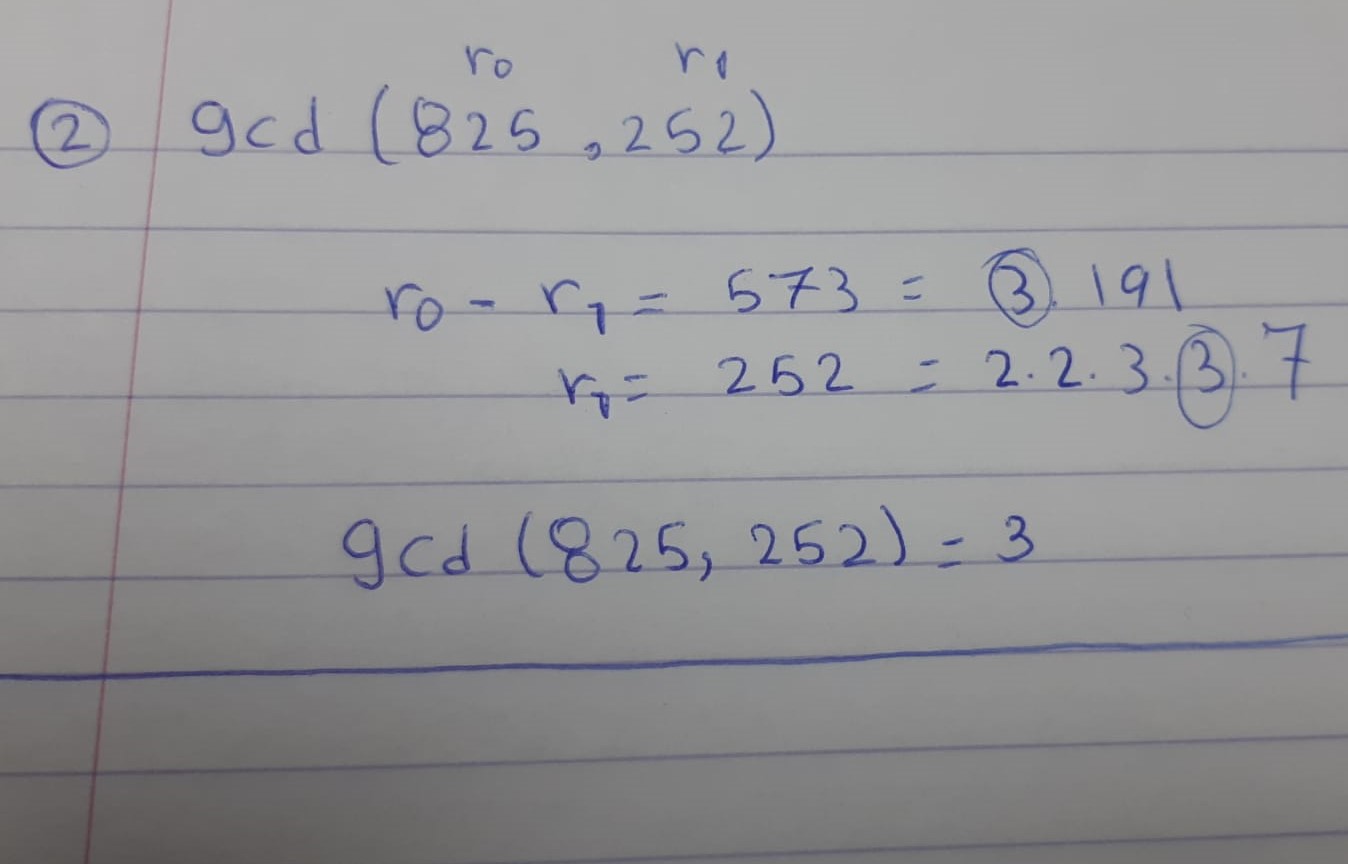 r0 r1
② gcd (825 , 252)
r0 - r1 = 573 = ③. 191
r1 = 252 = 2.2.3.③.7
gcd (825, 252) = 3